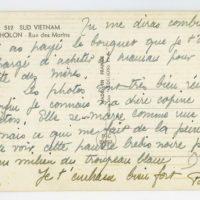 512 SUD VIETNAM
CHOLON - Rue des Marins
Tu me diras combi
as payé le bouquet que je t'
chargé d'acheter à maman pour
des mères.
Les photos sont très bien ré
je connais ma chère copine
Elle se marge comme une
mais ce qui me fait de la peine
voir, cette pauvre brebis noire p
au milieu du troupeau blanc
Je t'embrasse bien fort